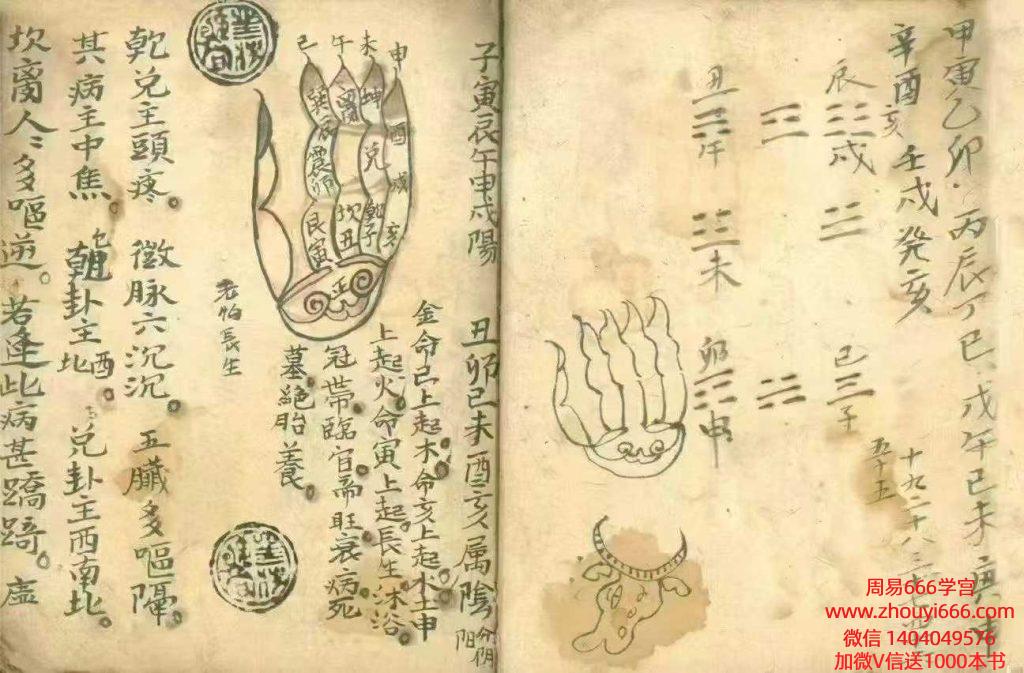 甲寅乙卯丙辰丁巳戊午己未庚申
辛酉壬戌癸亥
亥
辰
戌
巳
子
十九二十八三十七四
五十五
丑
午
未
卯
申
子寅辰午申戌陽
丑卯巳未酉亥属陰
分阴阳
金命巳上起木命亥上起水土申
上起火命寅上起長生沐浴。
冠帶臨官帝旺衰病死
墓絕胎養。
申
未
午
巳
坤
離
巽
辰
酉
兌
震
卯
戌
乾
子
坎
丑
艮
寅
亥
老怕長生
乾兑主頭疼。徵脉六沉沉。五臟多嘔隔。
其病主中焦。卦主西北。兑卦主西南北。
坎离人〻多嘔逆。若逢此病甚蹺蹊。虛
周易666学宫
www.zhouyi666.com
微信 1404049576
加微V信送1000本书